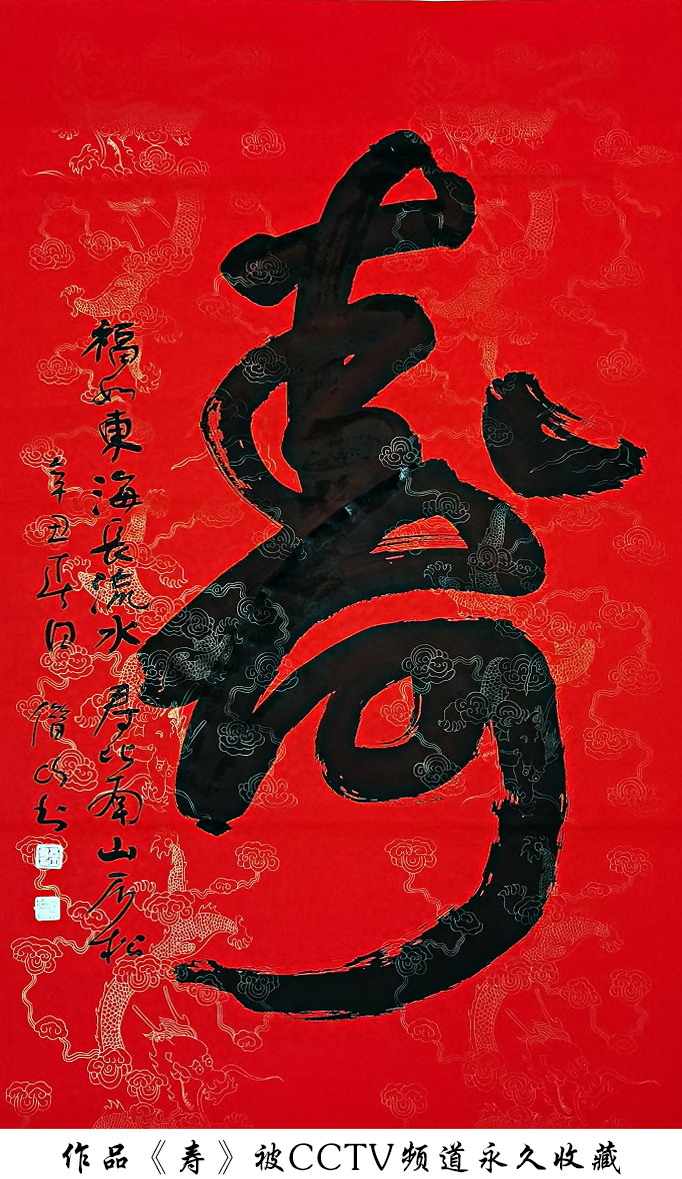 寿
福如東海長流水 寿比南山松
辛丑日 书
作品《寿》被CCTV频道永久收藏